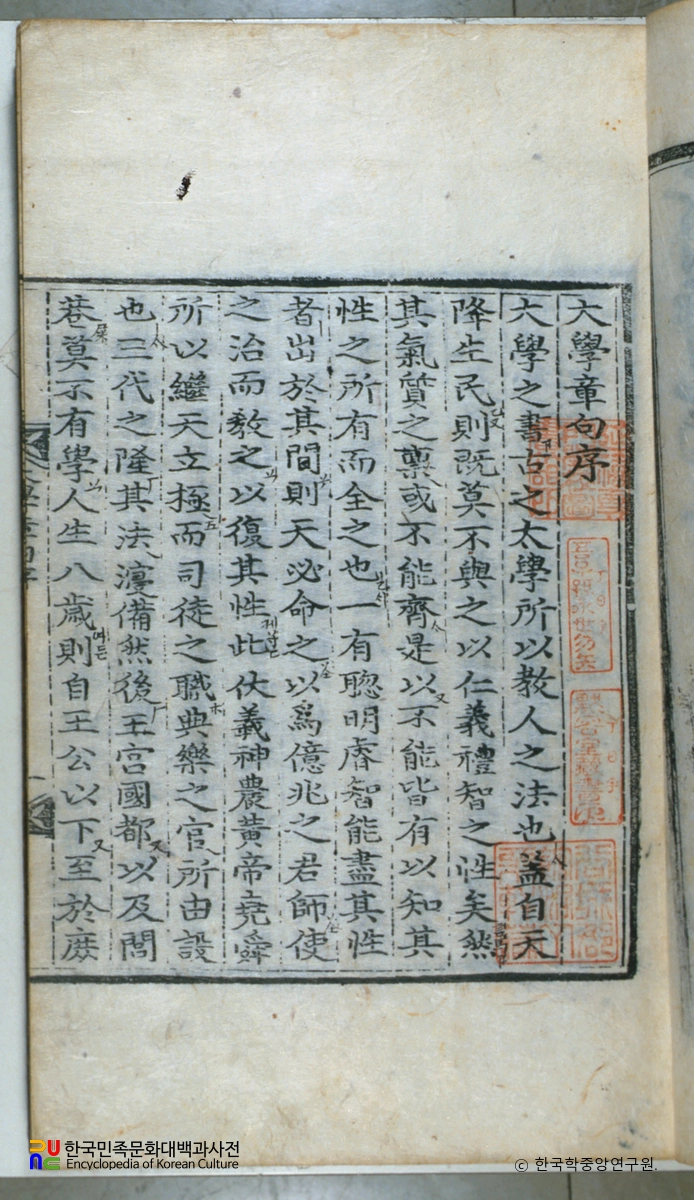 大學章句序
大學之書古之太學所以教人之法也盖自天
降生民則既莫不與之以仁義禮智之性矣然
其氣質之禀或不能齊是以不能皆有以知其
性之所有而全之也一有聰明睿智能盡其性
者出於其間則天必命之以爲億兆之君師使
之治而敎之以復其性此伏羲神農黃帝堯舜
所以繼天立極而司徒之職典樂之官所由設
也三代之隆其法寖備然後王宮國都以及閭
巷莫不有學人生八歲則自王公以下至於庶
한국민족문화대백과사전
Encyclopedia of Korean Culture
ⓒ 한국학중앙연구원.